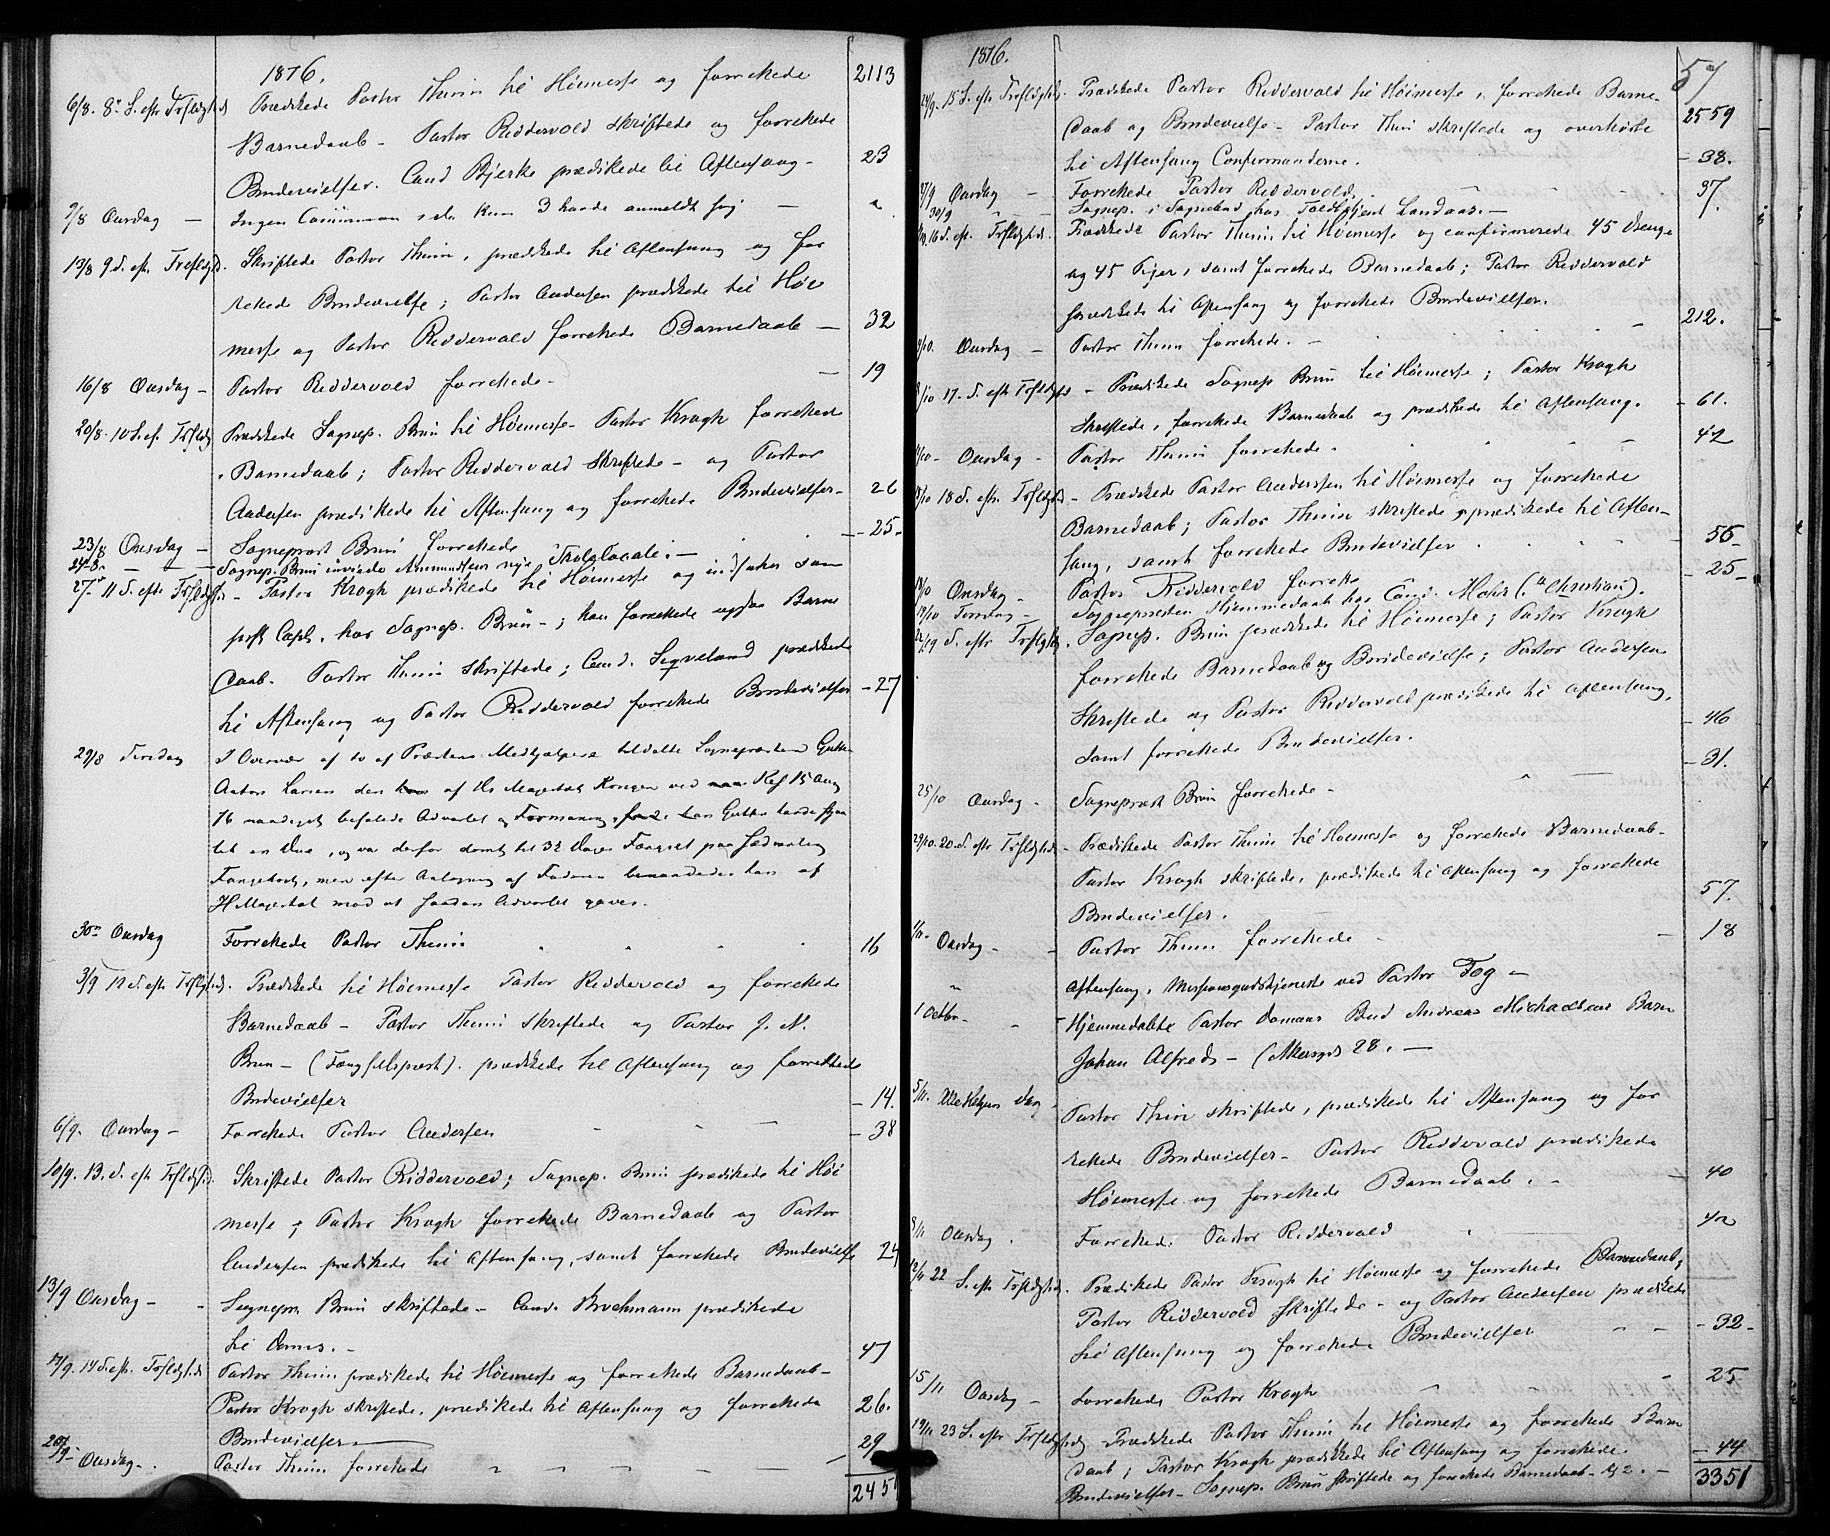 1876.
2113
6/8. 8de S. eftr Trefoldighed Prædikede Pastor Thinn til Høimesse og forrettede
Barnedaab - Pastor Riddervold skriftede og forrettede
Brudevielser. Cand Bjerke prædikede til Aftensang - 23
9/8 Onsdag - Ingen Communion, da kun 3 havde anmeldt sig -
13/8 9 S. eftr Trefoldigh. Skriftede Pastor Thinn, prædikede til Aftensang og for
rettede Brudevielse; Pastor Andersen prædikede til Høi
messe og Pastor Riddervold forrettede Barnedaab - 32
16/8 Onsdag - Pastor Riddervold forrettede - - 19
20/8. 10 S. ef. Trefoldigh Prædikede Sognep. Brun til Høimesse - Pastor Krogh forrettede
Barnedaab; Pastor Riddervold skriftede - og Pastor
Andersen prædikede til Aftensang og forrettede Brudevielser - 26
23/8 Onsdag - Sogneprest Brun forrettede - 25 -
24/8 - Sognep. Brun indviede Amundsens nye Locale. -
27de 11 S. eftr Trefoldigh - Pastor Krogh prædikede til Høimesse og indsattes som
pers. Capl. hos Sognep. Brun - ; han forrettede ogsaa Barne
daab. Pastor Thinn skriftede; Cand. Sigveland prædikede
til Aftensang og Pastor Riddervold forrettede Brudevielser - 27
29/8 Tirsdag I Overvær af to af Præstens Medhjælpere tildelte Sognepræsten Gutten
Anton Larsen den af Hs Majestæt Kongen ved Res 15 Aug
76 naadigst befalede Advarsel og Formaning, Gutten havde stjaa
let en Due, og var derfor dømt til 32 Dages Fængsel paa sædvanlig
Fangekost, men efter Ansøgning af Faderen benaadedes han af
H Majestæt mod at saadan Advarsel gaves.
30te Onsdag Forrettede Pastor Thinn 16
3/9 12 S. eftr Trefoldigh. Prædikede til Høimesse Pastor Riddervold og forrettede
Barnedaab - Pastor Thinn skriftede og Pastor J. N.
Brun - (Fængselsprest). prædikede til Aftensang og forrettede
Brudevielser - 14.
6/9. Onsdag - Forrettede Pastor Andersen - 38
10/9. 13. S. eftr Trefoldigh. Skriftede Pastor Riddervold; Sognep. Brun prædikede til Høi
messe; Pastor Krogh forrettede Barnedaab og Pastor
Andersen prædikede til Aftensang, samt forrettede Brudevielse 24
13/9 Onsdag - Sognepr. Brun skriftede - Cand. Brochmann prædikede
til - 47
17/9. 14 S. eft. Trefoldighed Pastor Thinn prædikede til Høimesse og forrettede Barnedaab -
Pastor Krogh skriftede, prædikede til Aftensang og forrettede 26.
Brudevielser - 29
20/9 - Onsdag - Pastor Thinn forrettede
2451
1876.
57
24/9. 15 S. eftr Trefoldigh. Prædikede Pastor Riddervold til Høimesse, forrettede Barne-
daab og Brudevielse - Pastor Thinn skriftede og overhørte 2559
til Aftensang Confirmanderne. - 38.
27/9 Onsdag - Forrettede Pastor Riddervold. 37.
30/9 Sognep. i Sognebud hos Landaas. -
16 S. eft. Trefoldigh. Prædikede Pastor Thinn til Høimesse og confirmerede 45 Drenge
og 45 Piger, samt forrettede Barnedaab; Pastor Riddervold
prædikede til Aftensang og forrettede Brudevielser. 212.
/10. Onsdag - Pastor Thinn forrettede. -
8/10 17. S. eftr Trefoldigh - Prædikede Sognep Brun til Høimesse; Pastor Krogh
skriftede, forrettede Barnedaab og prædikede til Aftensang. - 61.
/10 - Onsdag - Pastor Thinn forrettede. 42
15/10 18 S. eftr. Trefoldigh - Prædikede Pastor Andersen til Høimesse og forrettede
Barnedaab; Pastor Thinn skriftede, prædikede til Aften-
sang, samt forrettede Brudevielser - 56 -
18/10 Onsdag - Pastor Riddervold forrett. - 25 -
19/10 Torsdag - Sognepresten Hjemmedaab hos Cand. Mohr (Christian).
22/ 19 S. eftr Trefoldigh. Sognep. Brun prædikede til Høimesse; Pastor Krogh
forrettede Barnedaab og Brudevielse; Pastor Andersen
skriftede og Pastor Riddervold prædikede til Aftensang,
samt forrettede Brudevielser. - 46
- 31.
25/10 Onsdag - Sogneprest Brun forrettede -
29/10. 20. S. eftr Trefoldigh - Prædikede Pastor Thinn til Høimesse og forrettede Barnedaab -
Pastor Krogh skriftede, prædikede til Aftensang og forrettede
Brudevielser. 57.
1/11. Onsdag - - Pastor Thinn forrettede - - 18
Aftensang, Missionsgudstjeneste ved Pastor Fog -
1 Octbr - Hjemmedøbte Pastor Bud Andreas Michaelsens Barn
Johan Alfred - ( 28. -
5/11. Alle Helgens Dag - Pastor Thinn skriftede, prædikede til Aftensang og for
rettede Brudevielser - Pastor Riddervold prædikede
Høimesse og forrettede Barnedaab. - - 40
8/11 Onsdag. Forrettede Pastor Riddervold 42
12/11 22 S. eftr Trefoldigh. Prædikede Pastor Krogh til Høimesse og forrettede Barnedaab;
Pastor Riddervold skriftede - og Pastor Andersen prædikede
til Aftensang og forrettede Brudevielser - 32 -
15/11 Onsdag - Forrettede Pastor Krogh 25
19/11 23 S. eftr Trefoldigh - Prædikede Pastor Thinn til Høimesse og forrettede Barne
daab; Pastor Krogh prædikede til Aftensang og forrettede - 44
Brudevielser - Sognep. Brun skriftede og forrettede Barnedaab - 2. -
3351